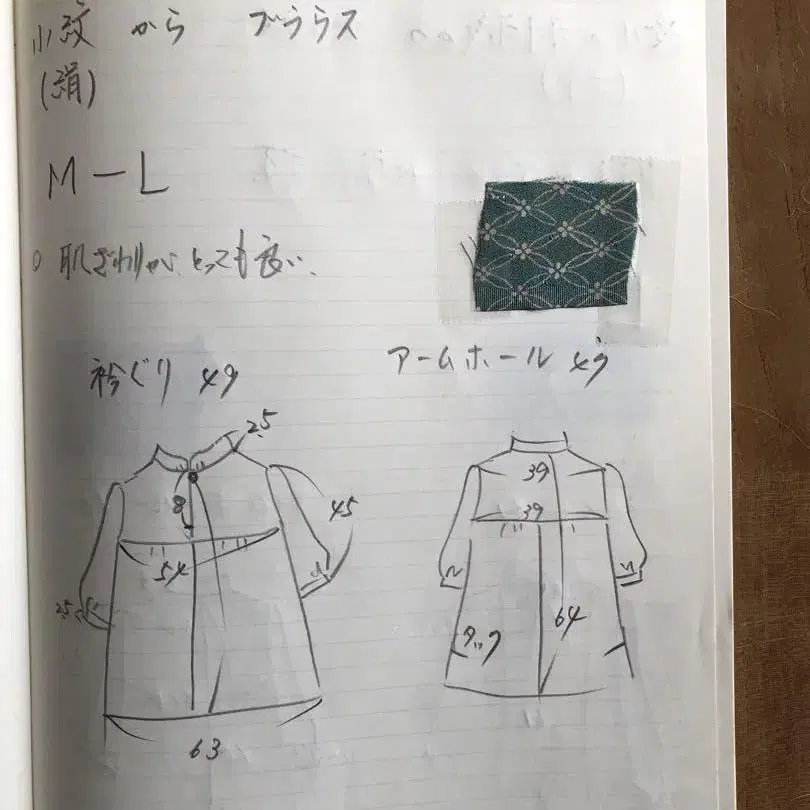 小紋 から ブララス
(絹)
M－L
○ 肌ざわりが、とっても良い、
衿ぐり 49
アームホール 49
2.5
8
45
54
25
63
39
39
64
タック